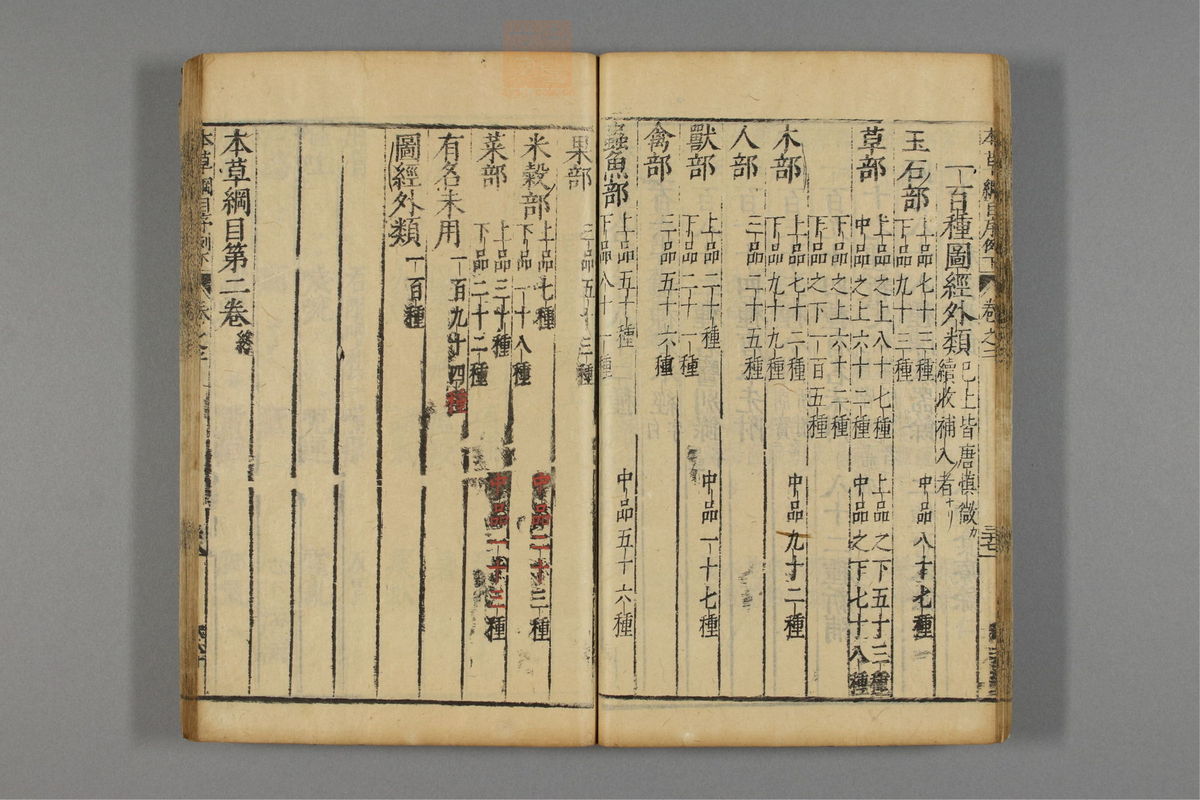 一百種圖經外類已上皆唐慎微續收補入者
玉石部 上品七十三種 中品八十七種 下品九十三種
草部 上品之上八十七種 上品之下五十三種 中品之上六十二種 中品之下七十八種 下品之上六十二種 下品之下一百五種
木部 上品七十二種 中品九十二種 下品九十九種
人部 三品二十五種
獸部 上品二十種 中品一十七種 下品二十一種
禽部 三品五十六種
蟲魚部 上品五十種 中品五十六種 下品八十一種
果部 三品五十三種
米穀部 上品七種 中品二十三種 下品一十八種
菜部 上品三十種 中品一十三種 下品二十二種
有名未用 一百九十四種
圖經外類 一百種
本草綱目第二卷終
本草綱目序例下 卷之二